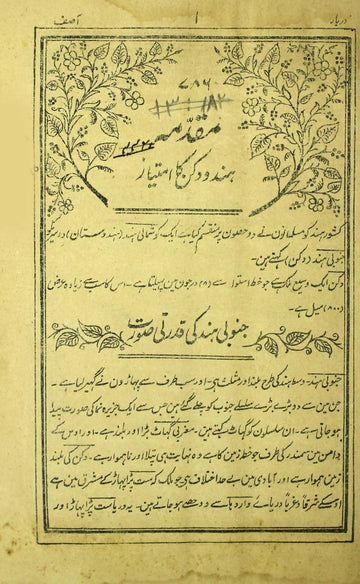 دربار ا آصف
۷۸۶
مقدمہ
ہند و دکن کا امتیاز
کشور ہند کو مسلمانون نے دو حصون پر منقسم کیا ہے ایک کو شمالی ہند (ہندوستان) دوسریکو
جنوبی ہند (دکن) کہتے ہین۔
دکن ایک وسیع ملک ہے جو خط استوا سے (۲۸) درجون مین پہیلتا ہے۔ اس کا سب سے زیادہ عرض
(۸۰۰) میل ہے۔
جنوبی ہند کی قدرتی صورت
جنوبی ہند۔ وسط ہند کی طرح بلند اور مثلث ہی۔ اور سب طرف سے پہاڑون نے گہیر لیا ہے۔
جن مین سے دو بڑے بڑے سلسلے جنوب کو چلے گئے ہین جس سے ایک جزیرہ نما کی صورت پیدا
ہو جاتی ہے۔ ان سلسلون کو گہاٹ کہتے ہین۔ مغربی گہاٹ بڑا اور بلند ہے۔ اور اوس کے
دامن مین سمندر کی طرف جو خط زمین کا ہے وہ نہایت ہی پتلا اور ناہموار ہے۔ دکن کی بلند
زمین ہموار ہے اور آبادی مین بے حد اختلاف ہی جو ملک کو ست پڑا پہاڑ کے مشرق مین ہے
اوسکے شرقاً و غرباً دریائے واردہا سے دو حصے ہو جاتے ہین۔ یہ دریا ست پڑا پہاڑ اور